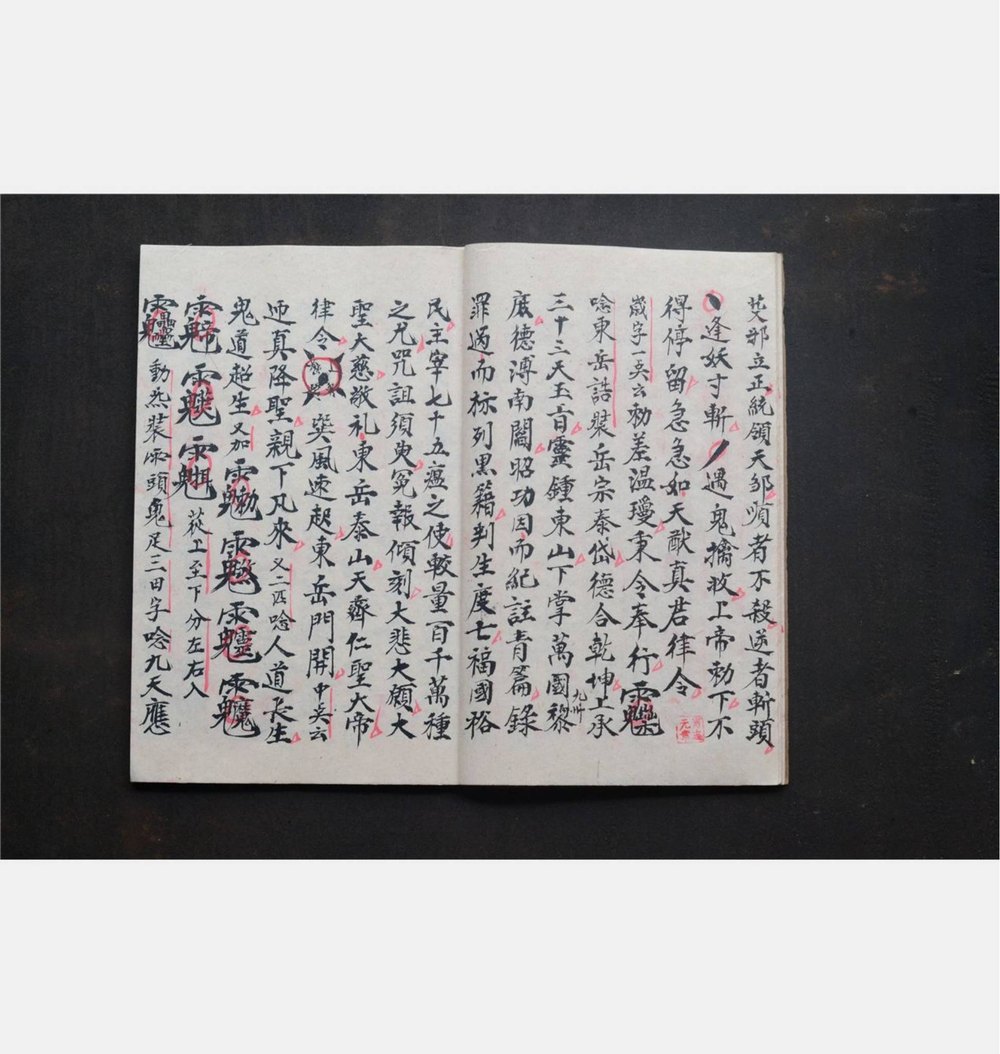 邪立正統領天邹順者不殺逆者斬頭
逢妖寸斬遇鬼擒收上帝勅下不
得停留急急如天猷真君律令
字一英云勅差温瓊秉令奉行
唸東岳誥裝岳宗泰岱德合乾坤上承
三十三天玉旨靈鍾東山下掌萬國九州黎
庶德溥南閻昭功因而紀註青篇錄
罪過而标列黑籍判生度亡福國裕
民主宰七十五瘟之使較量百千萬種
之尤咒詛須臾冤報傾刻大悲大願大
聖大慈敬礼東岳泰山天齊仁聖大帝
律令巽風速起東岳門開中英云
迎真降聖親下凡來又二匹唸人道長生
鬼道超生又加
上至下分左右入
動炁裝雨頭鬼足二三田字唸九天應